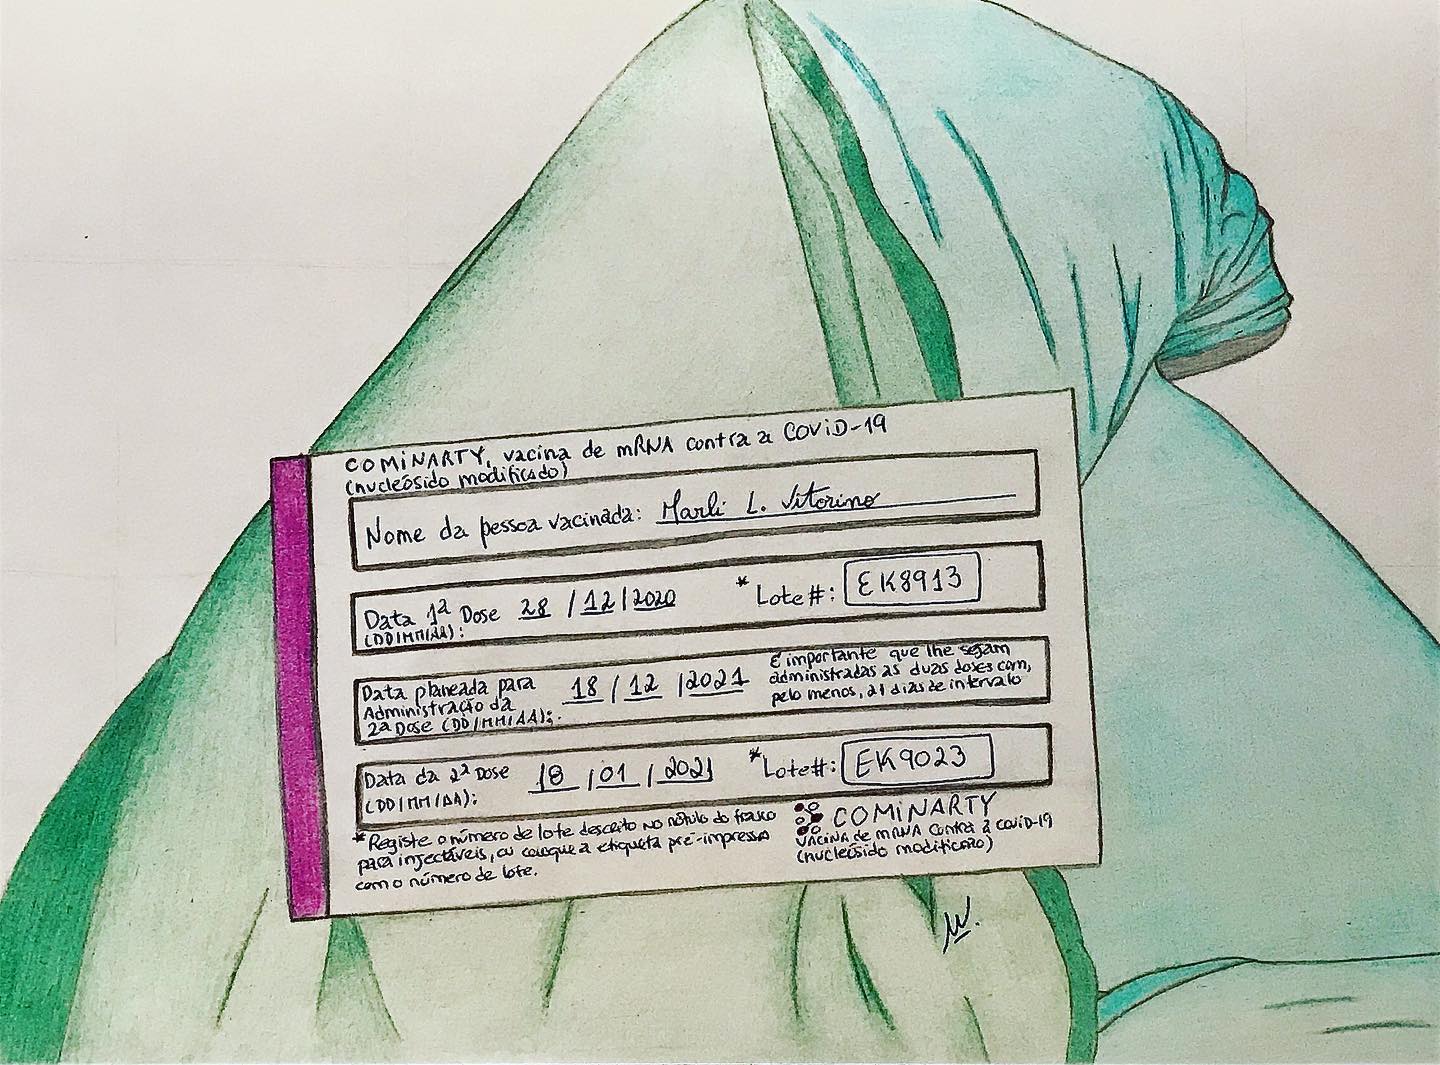 COMiNARTY, vacina de mRNA contra a COViD-19
(nucleósido modificado)
Nome da pessoa vacinada: Marli L. Vitorino
Data 1ª Dose 28 / 12 / 2020 * Lote#: EK8913
(DD/MM/AA):
Data planeada para
Administração da
2ª Dose (DD/MM/AA): 18 / 12 / 2021
É importante que lhe sejam
administradas as duas doses com,
pelo menos, 21 dias de intervalo
Data da 2ª Dose 18 / 01 / 2021 * Lote#: EK9023
(DD/MM/AA):
* Registe o número de lote descrito no rótulo do frasco
para injectáveis, ou coloque a etiqueta pré-impressa
com o número de lote.
COMiNARTY
VACiNA de mRNA contra a COViD-19
(nucleósido modificado)